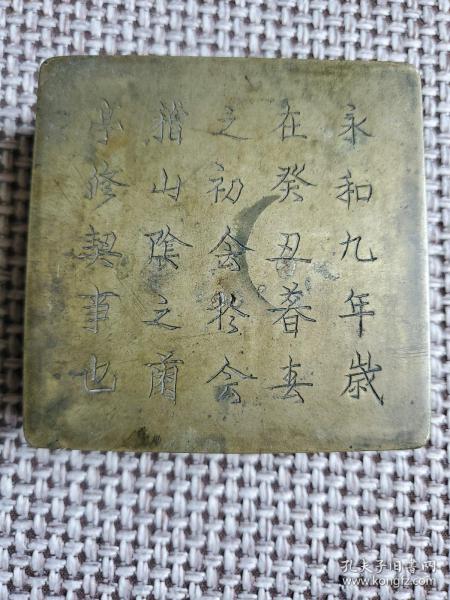 永和九年歲
在癸丑暮春
之初會於會
稽山陰之蘭
亭修契事也
孔夫子旧书网
www.kongfz.com